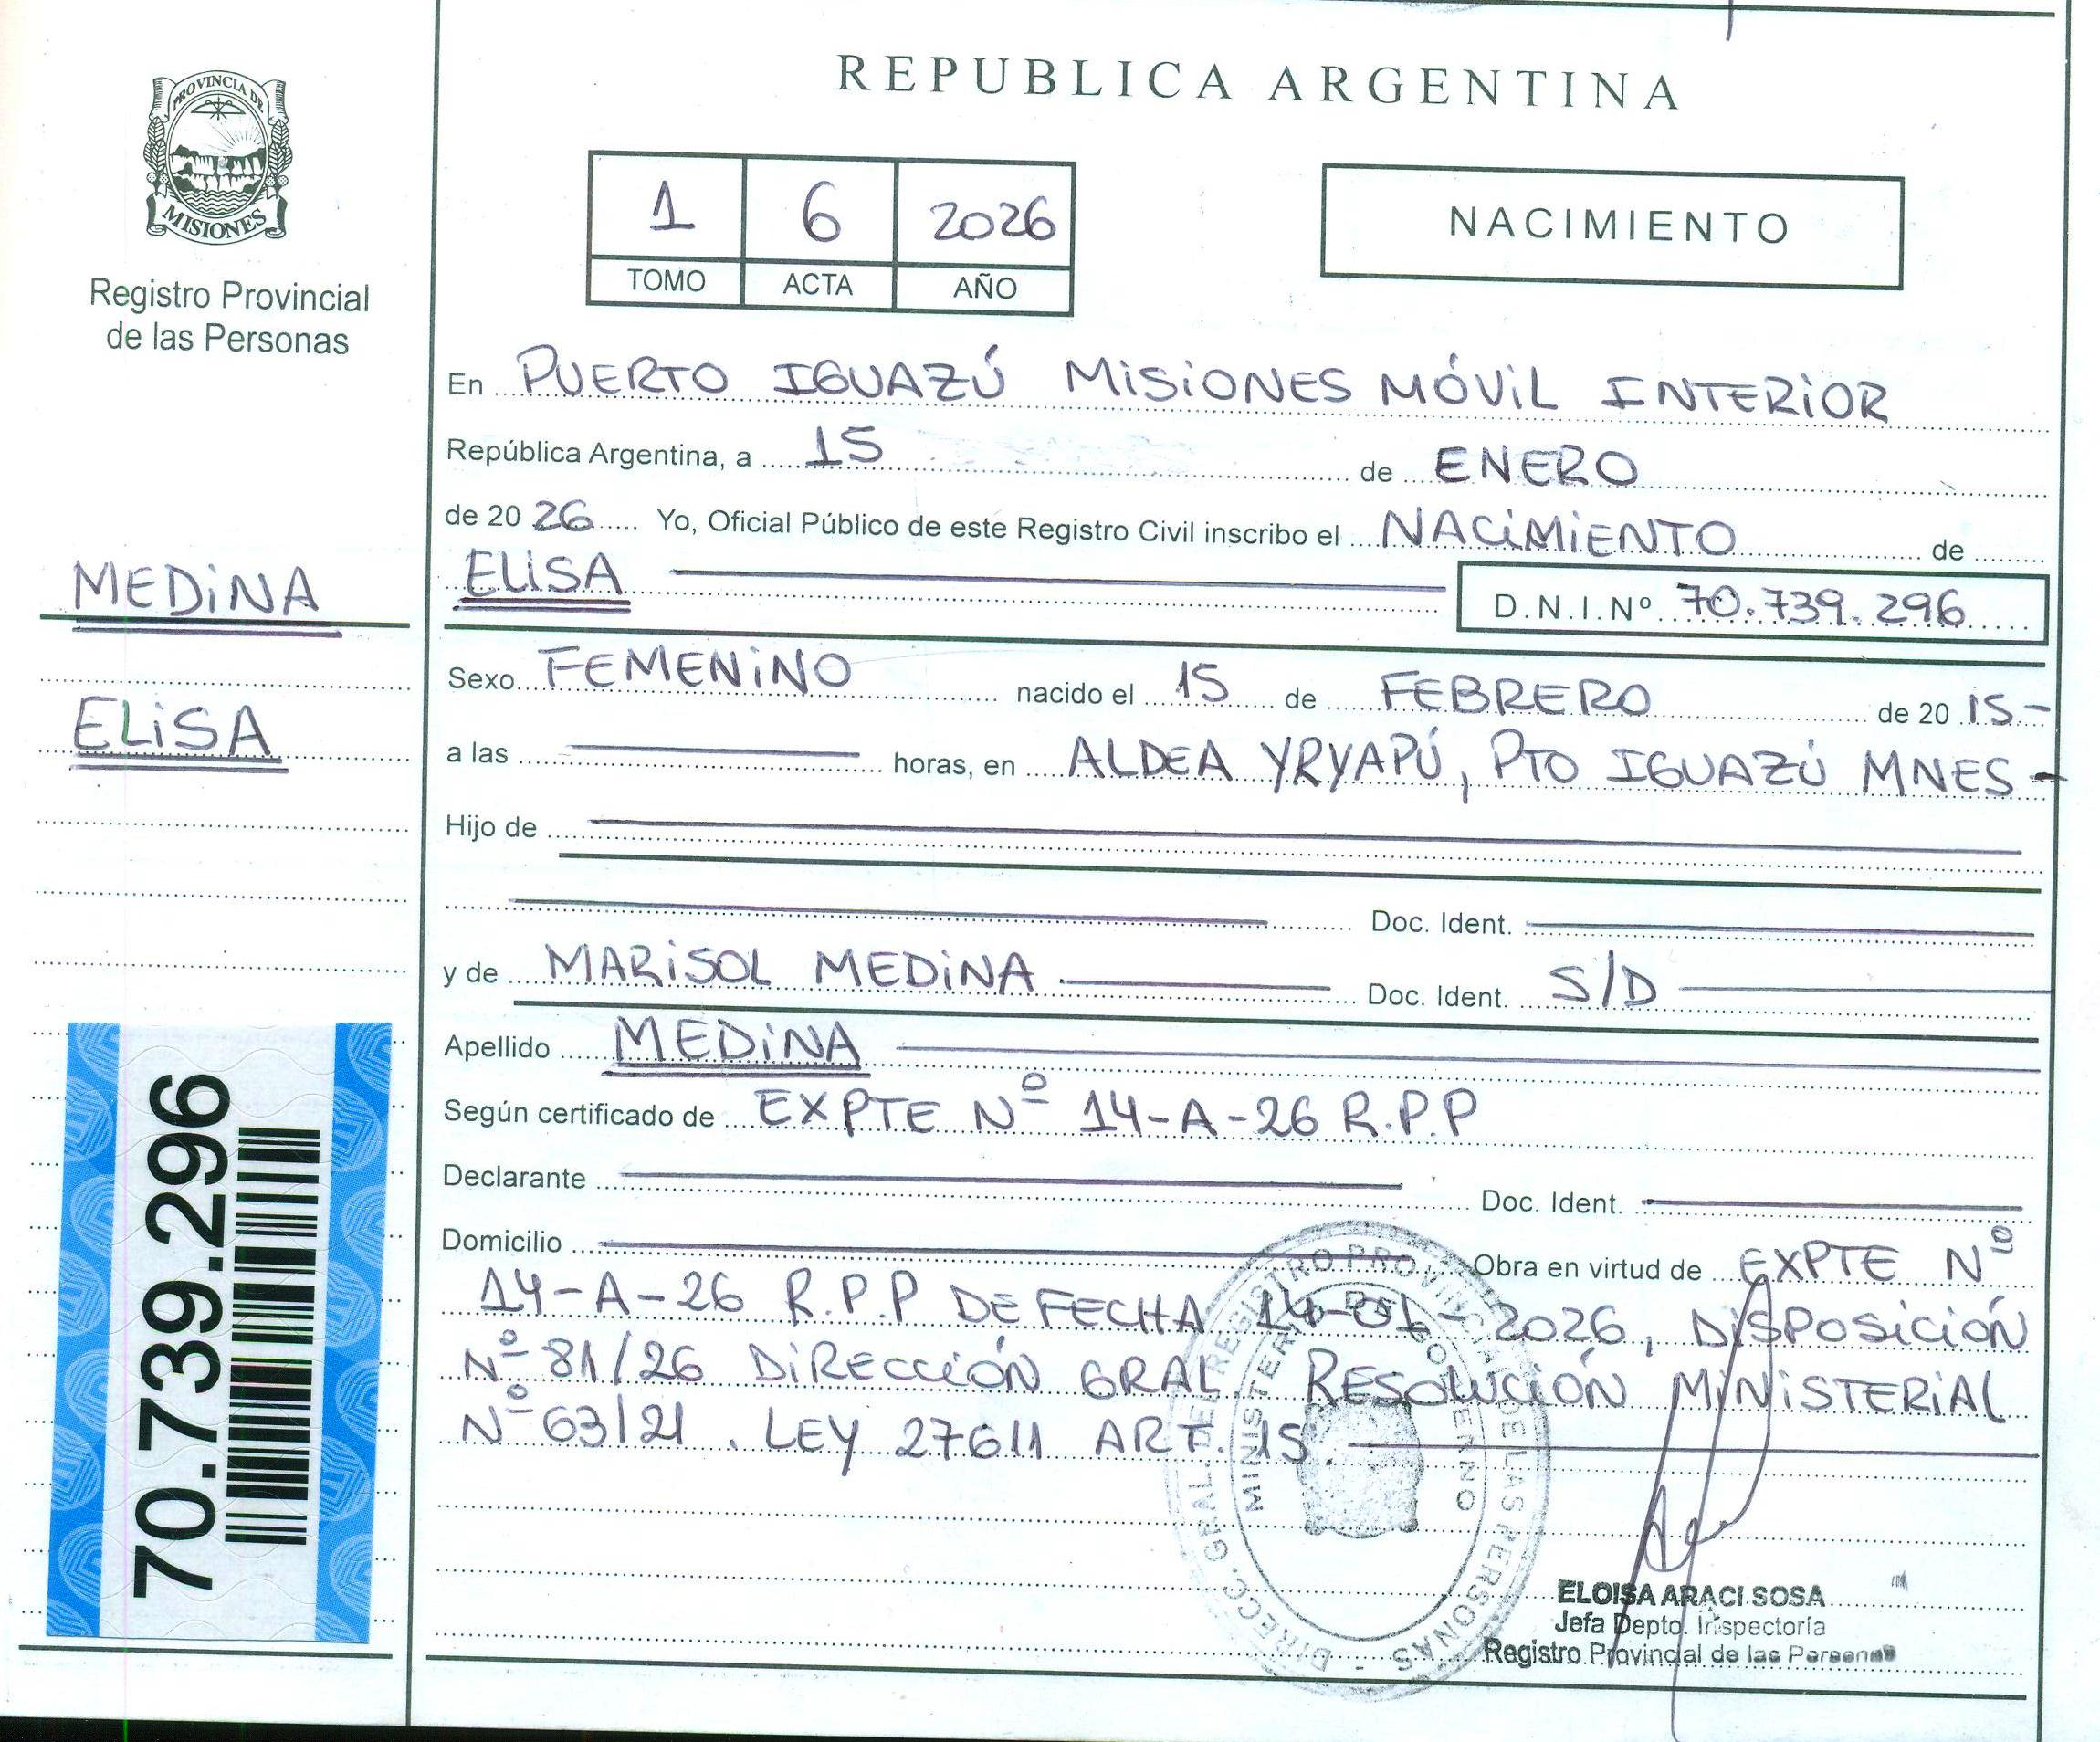 PROVINCIA DE
MISIONES
Registro Provincial
de las Personas
MEDINA
ELISA
70.739.296
REPUBLICA ARGENTINA
1 6 2026
TOMO ACTA AÑO
NACIMIENTO
En PUERTO IGUAZÚ MISIONES MÓVIL INTERIOR
República Argentina, a 15 de ENERO
de 20 26 Yo, Oficial Público de este Registro Civil inscribo el NACIMIENTO de
ELISA D.N.I.Nº 70.739.296
Sexo FEMENINO nacido el 15 de FEBRERO de 20 15-
a las horas, en ALDEA YRYAPÚ, PTO IGUAZÚ MNES-
Hijo de
Doc. Ident.
y de MARISOL MEDINA Doc. Ident. S/D
Apellido MEDINA
Según certificado de EXPTE Nº 14-A-26 R.P.P
Declarante Doc. Ident.
Domicilio Obra en virtud de EXPTE Nº
14-A-26 R.P.P DE FECHA 14-01-2026, DISPOSICIÓN
Nº 81/26 DIRECCIÓN GRAL. RESOLUCIÓN MINISTERIAL
Nº 63/21. LEY 27611 ART. 15.
DIRECC. GRAL. DEL REGISTRO PROVINCIAL DE LAS PERSONAS -
MINISTERIO DE GOBIERNO
ELOISA ARACI SOSA
Jefa Depto. Inspectoría
Registro Provincial de las Personas